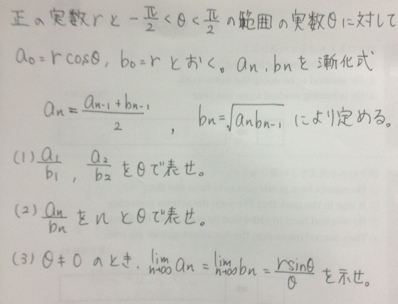 正の実数rと -π/2 < θ < π/2 の範囲の実数θに対して
a₀ = r cosθ, b₀ = r とおく。an, bn を漸化式
an = (an-1 + bn-1)/2 , bn = √(an bn-1) により定める。
(1) a₁/b₁ , a₂/b₂ をθで表せ。
(2) an/bn をnとθで表せ。
(3) θ ≠ 0 のとき, lim n→∞ an = lim n→∞ bn = r sinθ/θ を示せ。